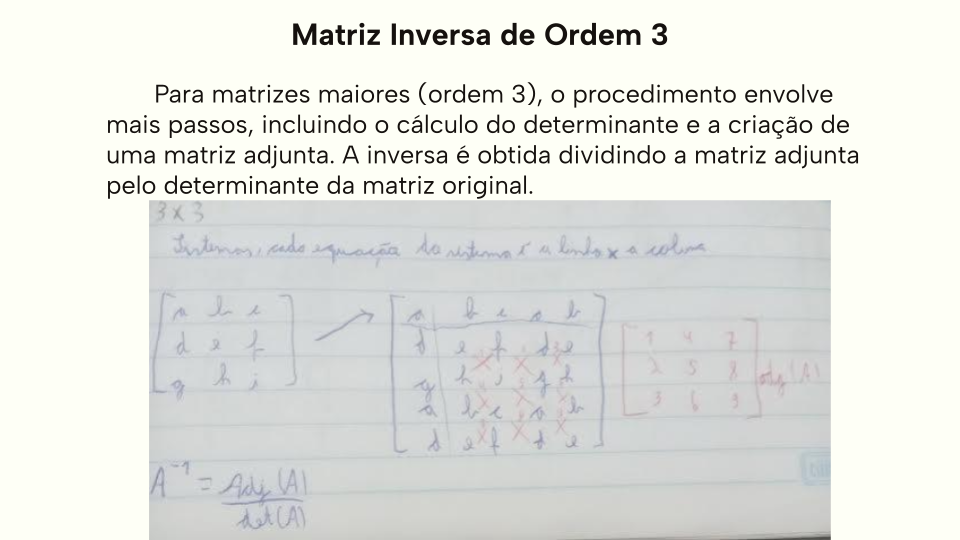 Matriz Inversa de Ordem 3
Para matrizes maiores (ordem 3), o procedimento envolve
mais passos, incluindo o cálculo do determinante e a criação de
uma matriz adjunta. A inversa é obtida dividindo a matriz adjunta
pelo determinante da matriz original.
3x3
Sistemas, cada equação do sistema é a linha x a coluna
a b c
d e f
g h i
a b c a b
d e f d e
g h i g h
a b c a b
d e f d e
1 4 7
2 5 8
3 6 9
adj(A)
A⁻¹ = Adj(A)
det(A)